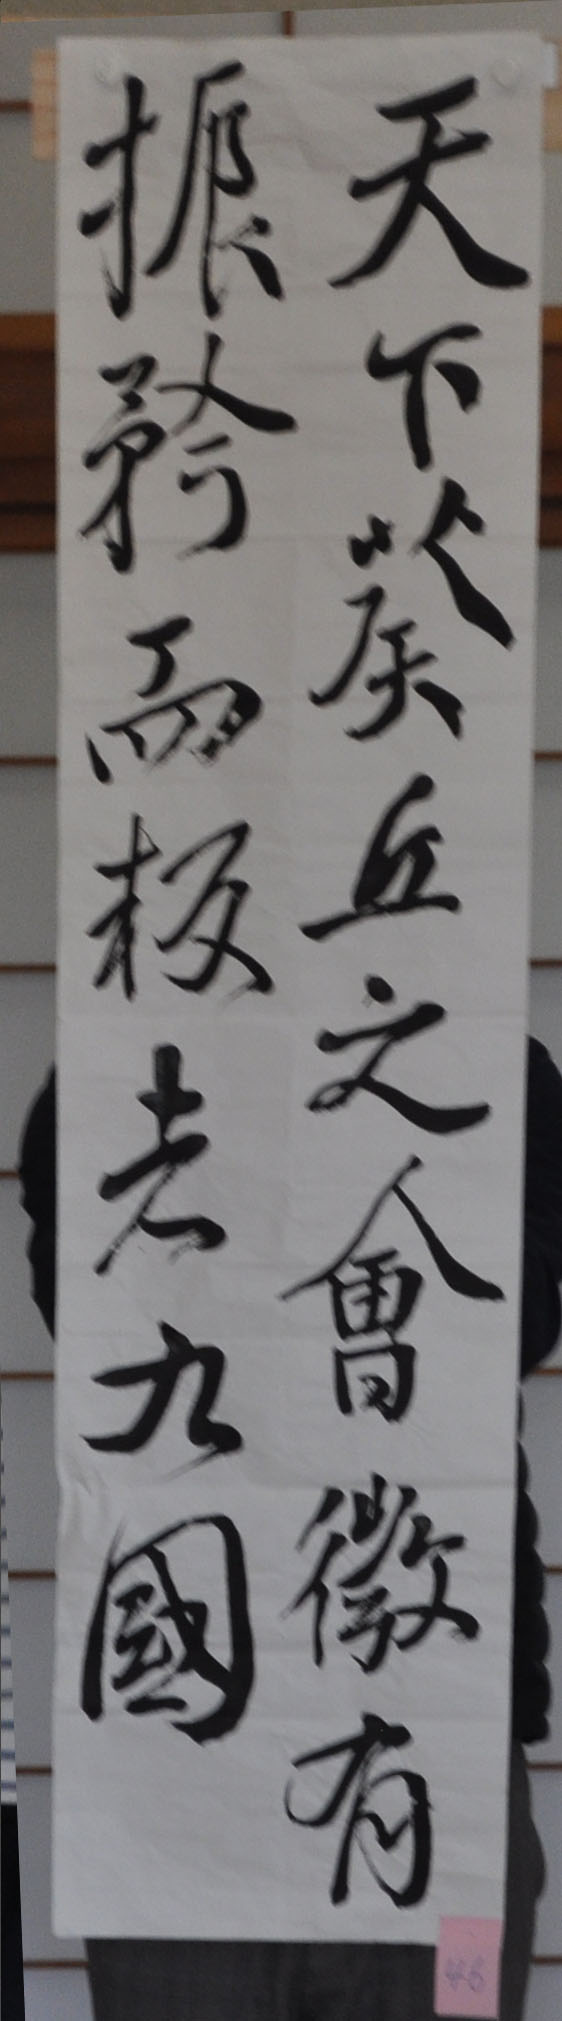 天下葵丘之會微有
振矜而叛者九國
46